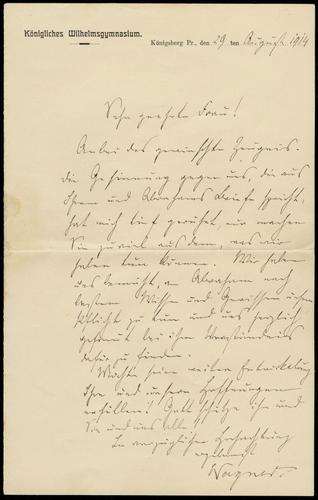 Königliches Wilhelmsgymnasium.
Königsberg Pr., den 29 ten August 1914
Sehr geehrte Frau!
Anbei das gewünschte Zeugnis.
Die Gesinnung gegen uns, die aus
Ihrem und Abrahams Briefe spricht,
hat mich tief gerührt, nur machen
Sie zuviel aus dem, was wir
haben tun können. Wir haben
uns bemüht, an Abraham nach
bestem Wissen und Gewissen unsere
Pflicht zu tun und uns herzlich
gefreut bei ihm Verständnis
dafür zu finden.
Möchte seine weitere Entwickelung
Ihre und unsere Hoffnungen
erfüllen! Gott schütze ihn und
Sie und uns alle!
In vorzüglicher Hochachtung
ergebenst
Wagner.